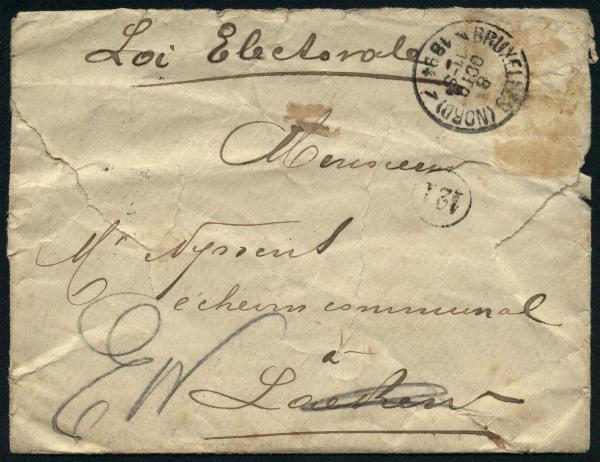 Loi Electorale
BRUXELLES (NORD) 7
8 OCTO
1894
Monsieur
121
Mr Nyssens
échevin communal
à
EW
Laeken